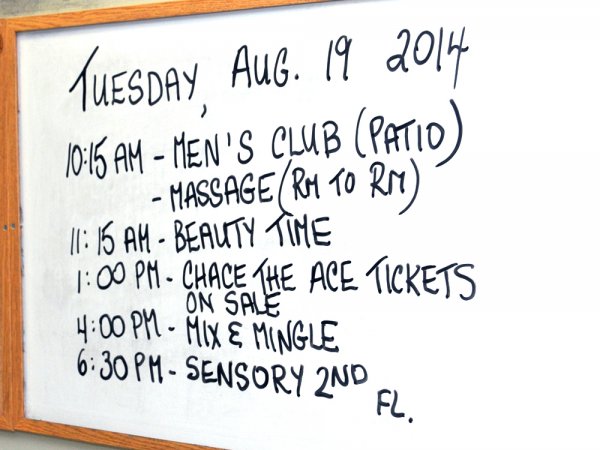 TUESDAY, AUG. 19 2014
10:15 AM - MEN'S CLUB (PATIO)
- MASSAGE (RM TO RM)
11:15 AM - BEAUTY TIME
1:00 PM - CHACE THE ACE TICKETS
ON SALE
4:00 PM - MIX & MINGLE
6:30 PM - SENSORY 2ND
FL.